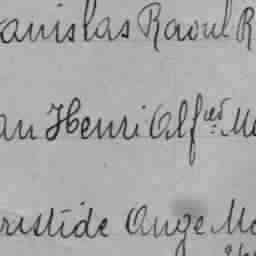 anislas Raoul R
an Henri Alfred Mo
ristide Ange Mo